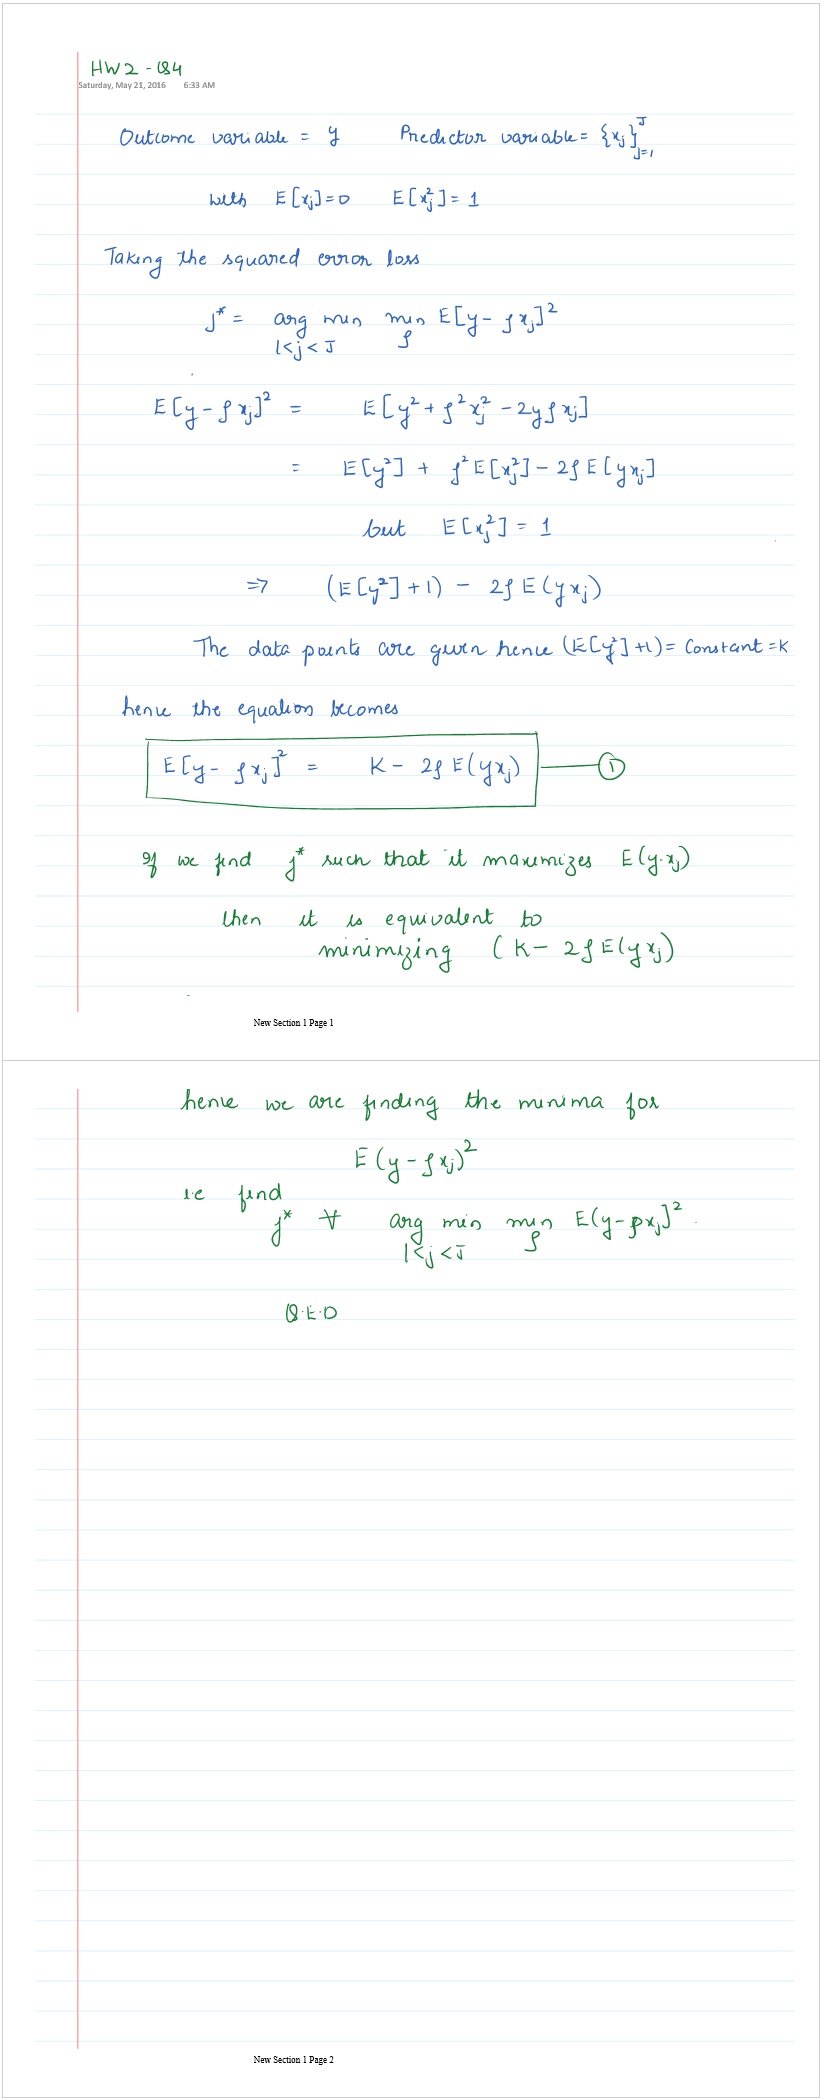 HW2 - Q4
Saturday, May 21, 2016 6:33 AM
Outcome variable = y Predictor variable = {xⱼ}ᴶⱼ₌₁
with E[xⱼ]=0 E[xⱼ²] = 1
Taking the squared error loss
j* = arg min min E[y - ρxⱼ]²
1<j<J ρ
E[y - ρxⱼ]² = E[y² + ρ²xⱼ² - 2yρxⱼ]
= E[y²] + ρ²E[xⱼ²] - 2ρE[yxⱼ]
but E[xⱼ²] = 1
=> (E[y²]+1) - 2ρE(yxⱼ)
The data points are given hence (E[y²]+1) = Constant = K
hence the equation becomes
E[y - ρxⱼ]² = K - 2ρE(yxⱼ) ①
If we find j* such that it maximizes E(y·xⱼ)
then it is equivalent to
minimizing (K - 2ρE(yxⱼ)
New Section 1 Page 1
hence we are finding the minima for
E(y - ρxⱼ)²
i.e find
j* ∀ arg min min E(y-ρxⱼ]²
1<j<J ρ
Q.E.D
New Section 1 Page 2